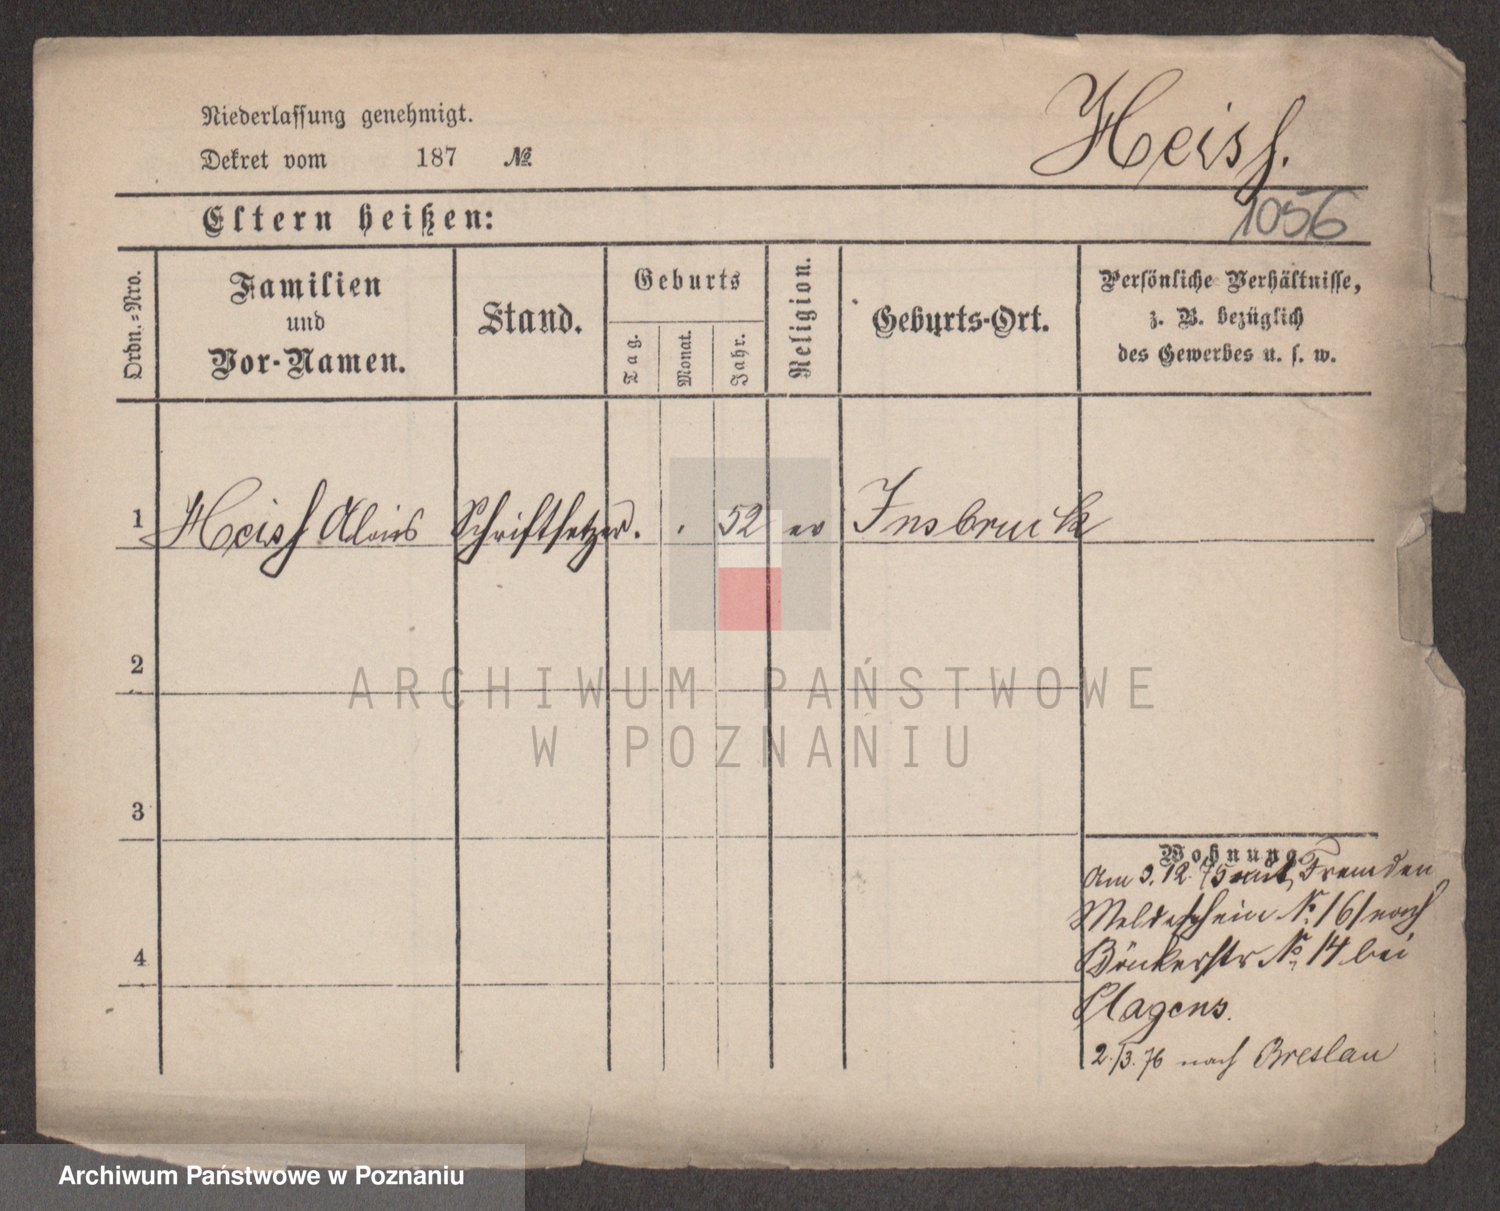 Niederlassung genehmigt.
Heiss.
Dekret vom 187 №
Eltern heißen:
1056
Ordn.-Nro.
Familien
und
Vor-Namen.
Stand.
Geburts
Tag.
Monat.
Jahr.
Religion.
Geburts-Ort.
Persönliche Verhältnisse,
z. B. bezüglich
des Gewerbes u. s. w.
1 Heiss Alois Schriftsetzer. 52 ev Insbruck
2
ARCHIWUM PAŃSTWOWE
W POZNANIU
3
Wohnung.
Am 9.12.75 mit Fremden
Meldeschein № 161 nach
4
Bönkerstr № 14 bei
Plagens.
2./3.76 nach Breslau
Archiwum Państwowe w Poznaniu